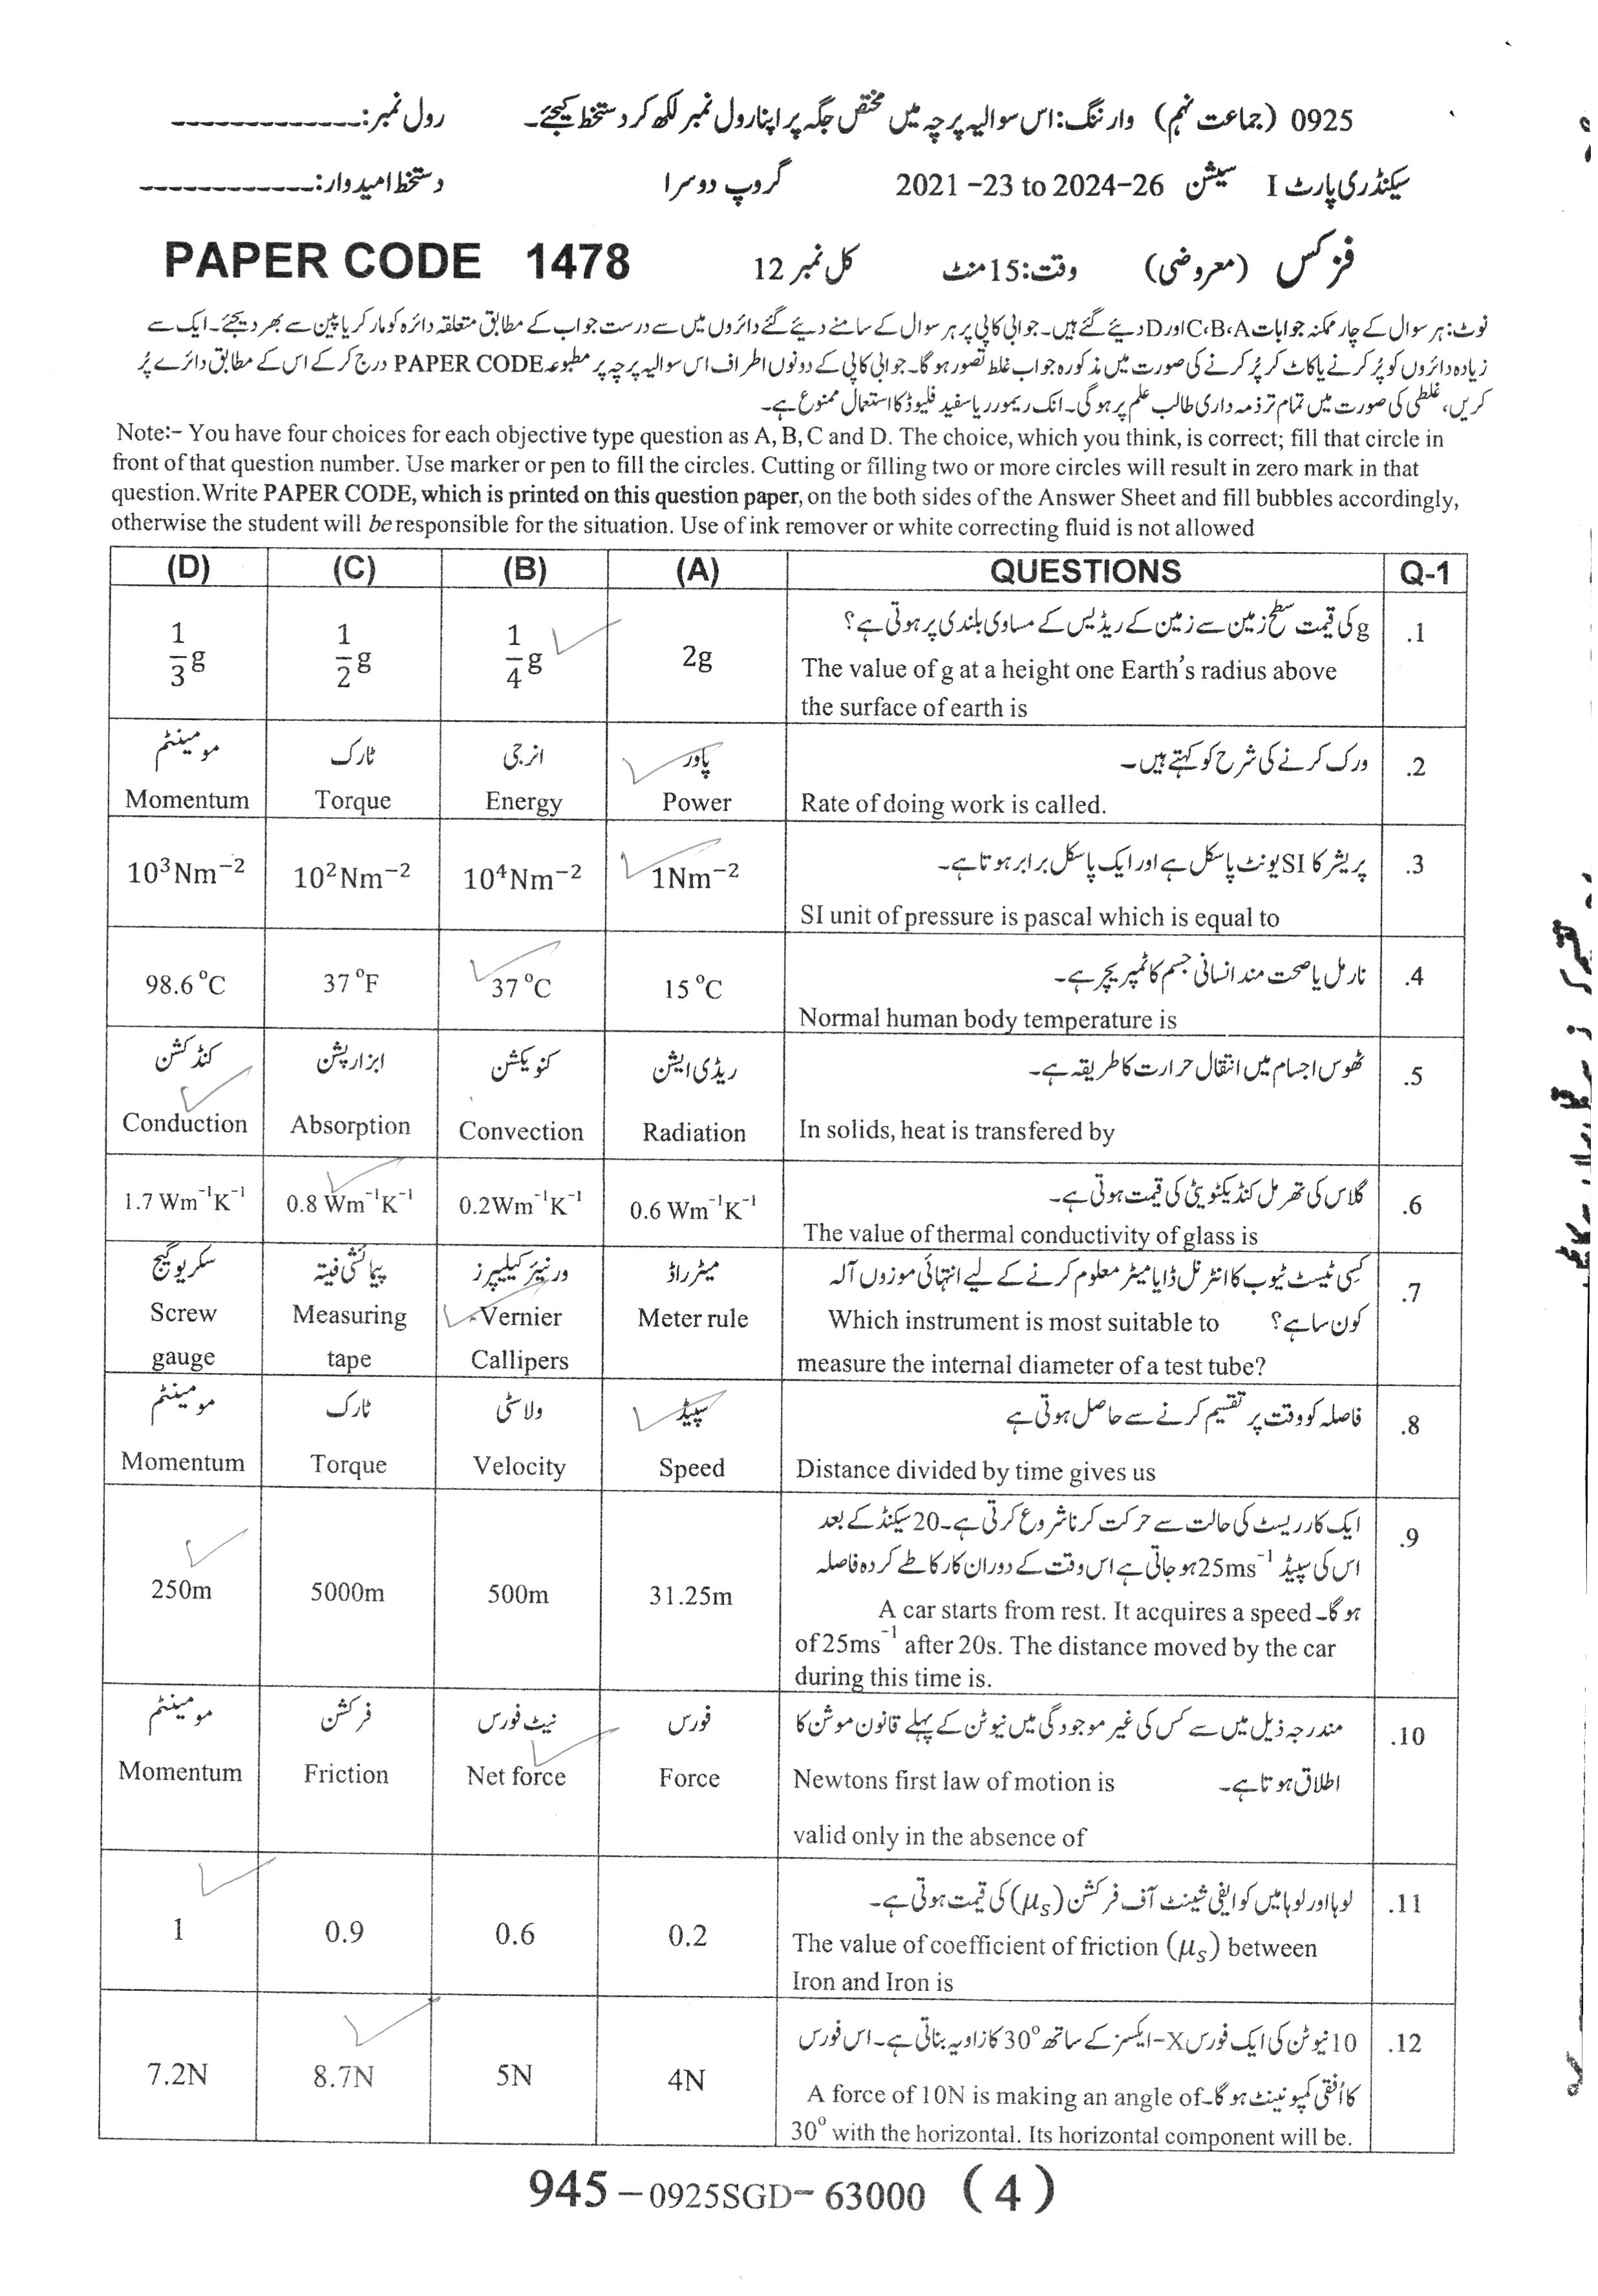 0925 (جماعت نہم) وارننگ: اس سوالیہ پرچہ میں مختص جگہ پر اپنا رول نمبر لکھ کر دستخط کیجئے۔ رول نمبر: _____________
سیکنڈری پارٹ I سیشن 2021 –23 to 2024–26 گروپ دوسرا دستخط امیدوار: _____________
فزکس (معروضی) وقت: 15 منٹ کل نمبر 12 PAPER CODE 1478
نوٹ: ہر سوال کے چار ممکنہ جوابات C،B،A اور D دیئے گئے ہیں۔ جوابی کاپی پر ہر سوال کے سامنے دیئے گئے دائروں میں سے درست جواب کے مطابق متعلقہ دائرہ کو مارکر یا پین سے بھر دیجئے۔ ایک سے
زیادہ دائروں کو پُر کرنے یا کاٹ کر پُر کرنے کی صورت میں مذکورہ جواب غلط تصور ہوگا۔ جوابی کاپی کے دونوں اطراف اس سوالیہ پرچہ پر مطبوعہ PAPER CODE درج کر کے اس کے مطابق دائرے پُر
کریں، غلطی کی صورت میں تمام تر ذمہ داری طالب علم پر ہوگی۔ انک ریمور یا سفید فلیوڈ کا استعمال ممنوع ہے۔
Note:- You have four choices for each objective type question as A, B, C and D. The choice, which you think, is correct; fill that circle in
front of that question number. Use marker or pen to fill the circles. Cutting or filling two or more circles will result in zero mark in that
question. Write PAPER CODE, which is printed on this question paper, on the both sides of the Answer Sheet and fill bubbles accordingly,
otherwise the student will be responsible for the situation. Use of ink remover or white correcting fluid is not allowed
(D) (C) (B) (A) QUESTIONS Q-1
g کی قیمت سطح زمین سے زمین کے ریڈیس کے مساوی بلندی پر ہوتی ہے؟ .1
1/3 g 1/2 g 1/4 g 2g The value of g at a height one Earth's radius above
the surface of earth is
مومینٹم ٹارک انرجی پاور ورک کرنے کی شرح کو کہتے ہیں۔ .2
Momentum Torque Energy Power Rate of doing work is called.
پریشر کا SI یونٹ پاسکل ہے اور ایک پاسکل برابر ہوتا ہے۔ .3
10³Nm⁻² 10²Nm⁻² 10⁴Nm⁻² 1Nm⁻²
SI unit of pressure is pascal which is equal to
نارمل یا صحت مند انسانی جسم کا ٹمپریچر ہے۔ .4
98.6 °C 37 °F 37 °C 15 °C
Normal human body temperature is
کنڈکشن ابزارپشن کنویکشن ریڈی ایشن ٹھوس اجسام میں انتقال حرارت کا طریقہ ہے۔ .5
Conduction Absorption Convection Radiation In solids, heat is transfered by
گلاس کی تھرمل کنڈیکٹویٹی کی قیمت ہوتی ہے۔ .6
1.7 Wm⁻¹K⁻¹ 0.8 Wm⁻¹K⁻¹ 0.2Wm⁻¹K⁻¹ 0.6 Wm⁻¹K⁻¹
The value of thermal conductivity of glass is
سکریو گیج پیمائشی فیتہ ورنیئر کیلیپرز میٹر راڈ کسی ٹیسٹ ٹیوب کا انٹرنل ڈایا میٹر معلوم کرنے کے لیے انتہائی موزوں آلہ .7
Screw Measuring Vernier Meter rule Which instrument is most suitable to کون سا ہے؟
gauge tape Callipers measure the internal diameter of a test tube?
مومینٹم ٹارک ولاسٹی سپیڈ فاصلہ کو وقت پر تقسیم کرنے سے حاصل ہوتی ہے .8
Momentum Torque Velocity Speed Distance divided by time gives us
ایک کار ریسٹ کی حالت سے حرکت کرنا شروع کرتی ہے۔ 20 سیکنڈ کے بعد .9
اس کی سپیڈ 25ms⁻¹ ہو جاتی ہے اس وقت کے دوران کار کا طے کردہ فاصلہ
250m 5000m 500m 31.25m
ہو گا۔ A car starts from rest. It acquires a speed
of 25ms⁻¹ after 20s. The distance moved by the car
during this time is.
مومینٹم فرکشن نیٹ فورس فورس مندرجہ ذیل میں سے کس کی غیر موجودگی میں نیوٹن کے پہلے قانون موشن کا .10
Momentum Friction Net force Force Newtons first law of motion is اطلاق ہوتا ہے۔
valid only in the absence of
لوہا اور لوہا میں کو ایفی شینٹ آف فرکشن (μs) کی قیمت ہوتی ہے۔ .11
1 0.9 0.6 0.2 The value of coefficient of friction (μs) between
Iron and Iron is
10 نیوٹن کی ایک فورس X-ایکسز کے ساتھ 30° کا زاویہ بناتی ہے۔ اس فورس .12
7.2N 8.7N 5N 4N کا اُفقی کمپونینٹ ہو گا۔ A force of 10N is making an angle of
30° with the horizontal. Its horizontal component will be.
945 – 0925SGD– 63000 (4)